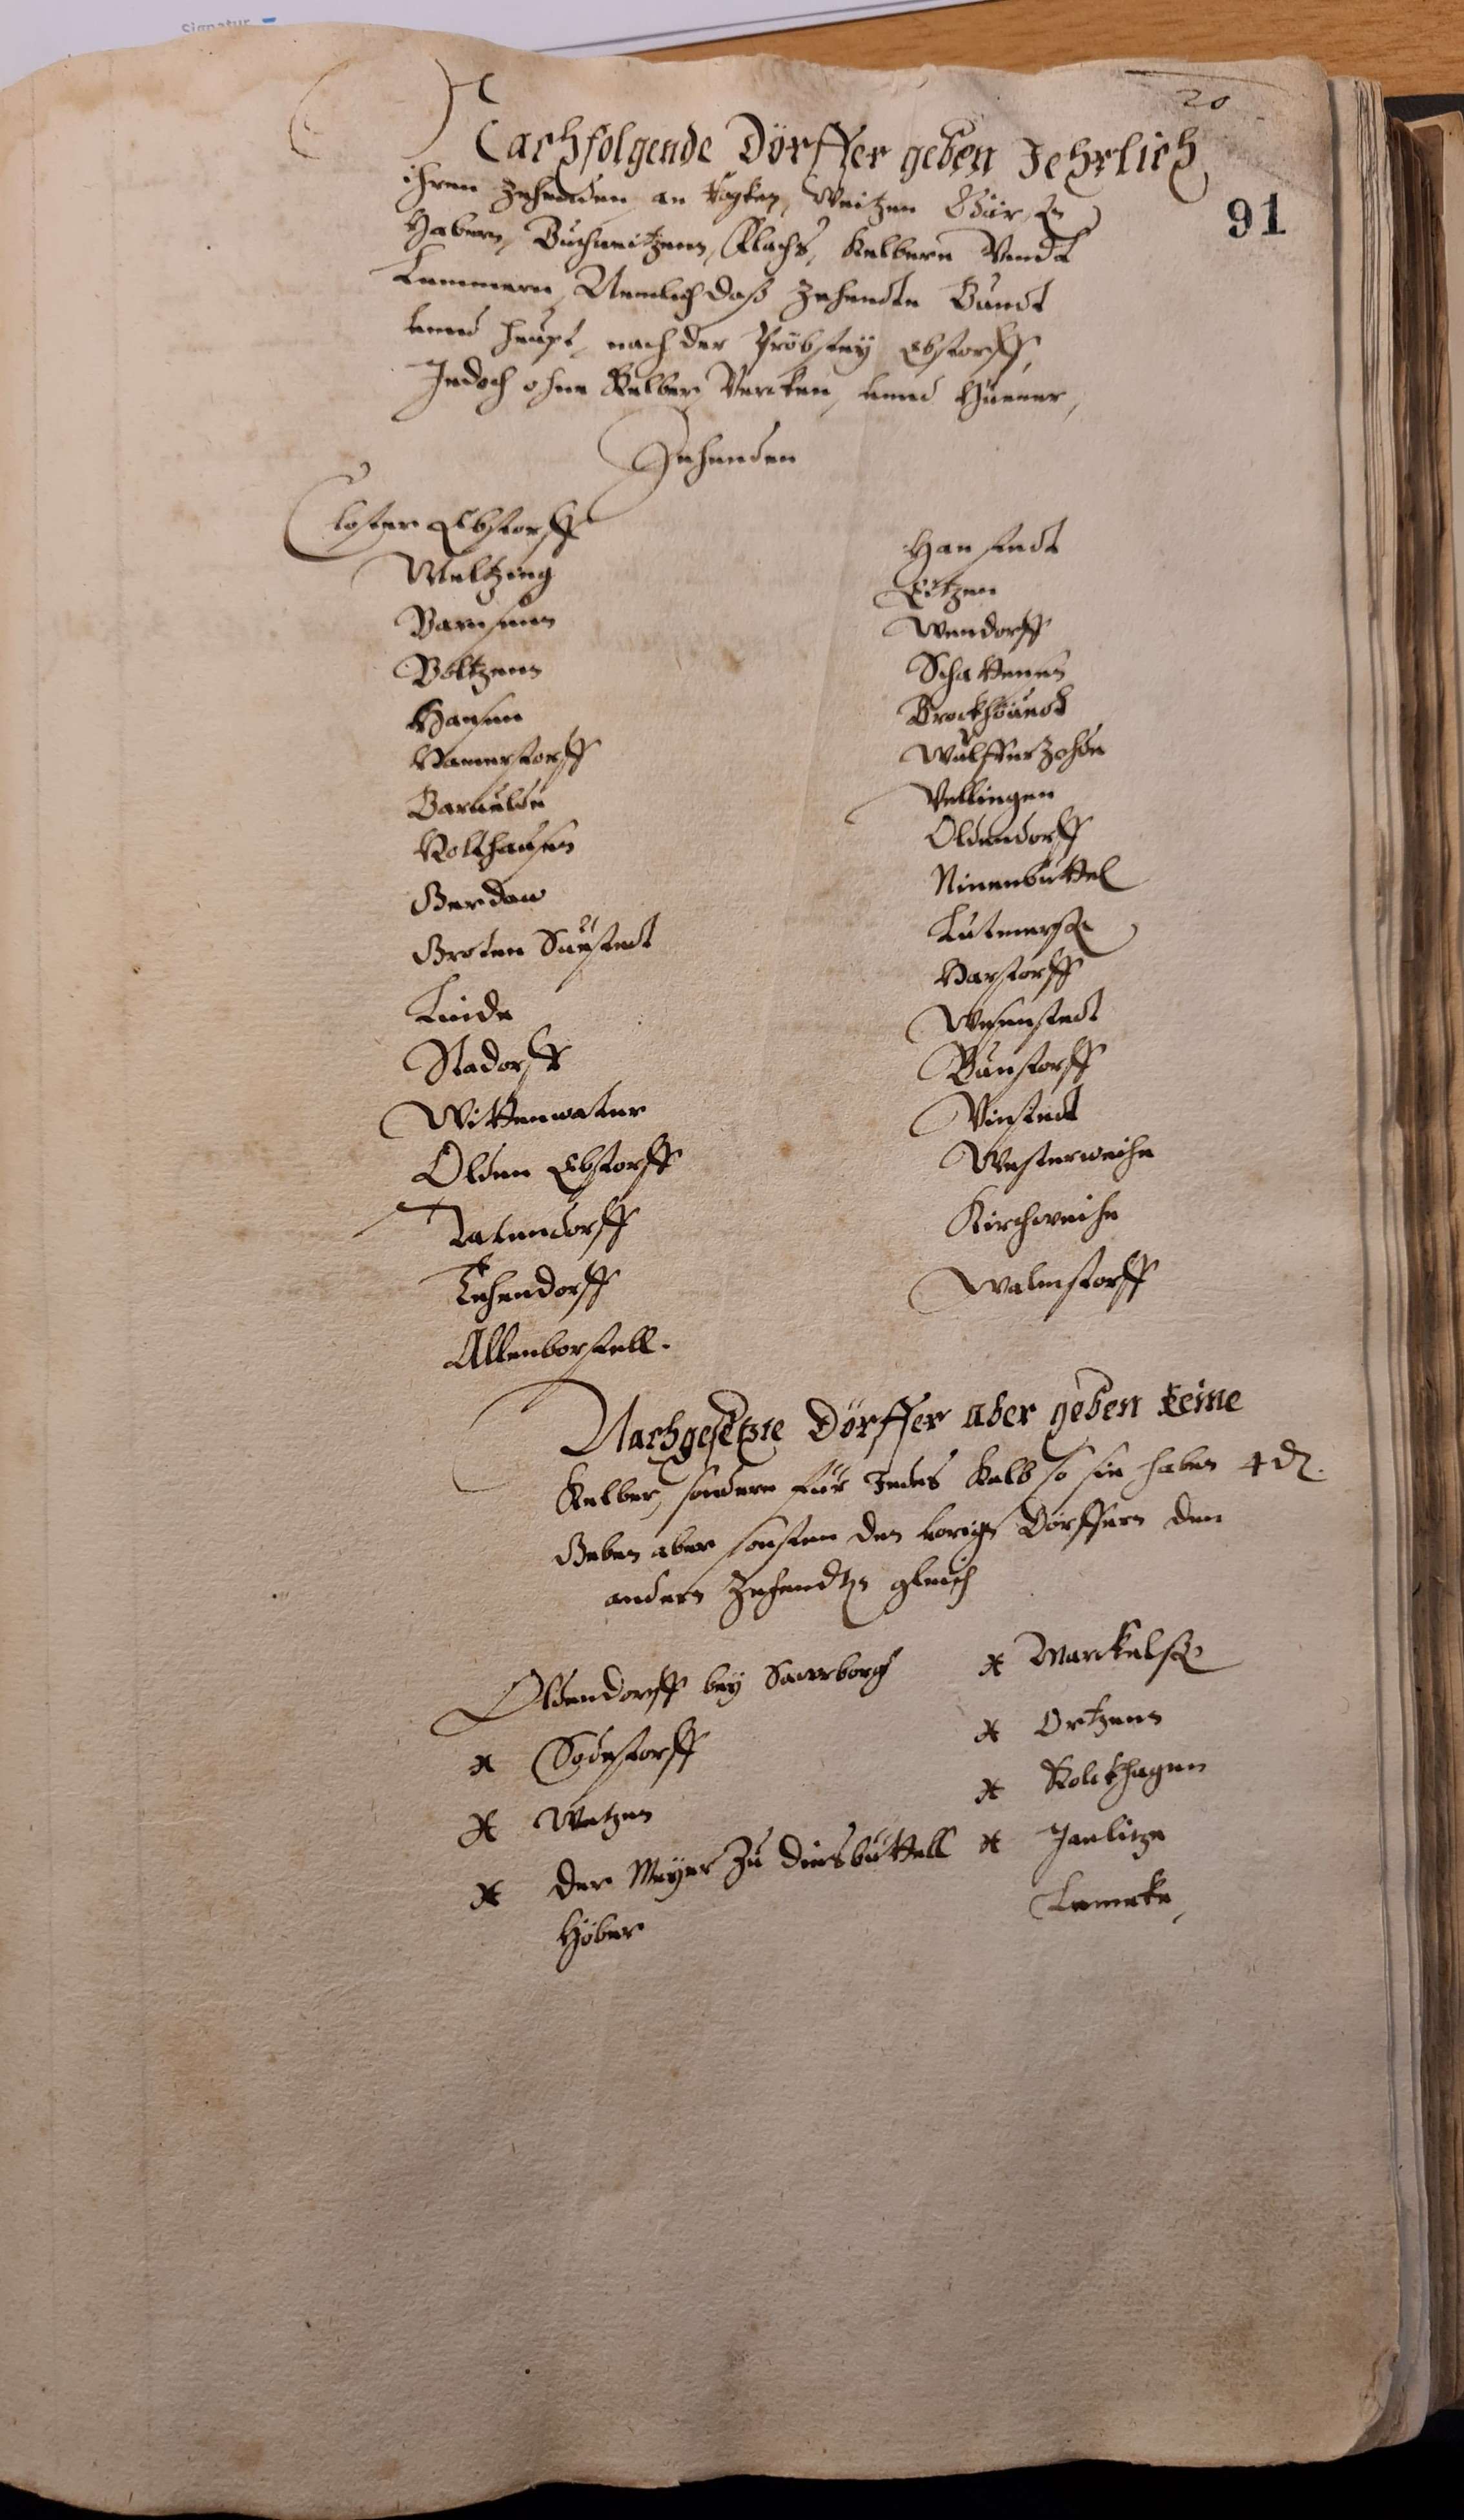 Signatur
20
91
Nachfolgende Dörffer geben Jehrlich
ihren Zehenden an Rogken, Weitzen
Habern, Buchweitzen, Flachs, Kelbern Vndt
Lemmern, Nemlich daß Zehendte Bundt
vnnd heupt, nach der Pröbstey Ebstorff,
Jedoch ohne Kelber, Vercken, vnnd Hüener,
Zehenden
Closter Ebstorff
Meltzing
Barnsen
Boltzenn
Hansen
Hamerstorff
Barnelde
Holthausen
Gerdaw
Groten Süstedt
Linde
Stadorff
Wittenwater
Olden Ebstorff
Tatendorff
Tehendorff
Allenborstell.
Hanstedt
Eitzen
Wendorff
Schattenen
Brockhövede
Wulffer Zohde
Vellingen
Oldendorff
Ninenbüttel
Lutmerss
Harstorff
Wesenstedt
Bunstorff
Vinstedt
Westerweihe
Kirchweihe
Walmstorff
Nachgesetzte Dörffer aber geben keine
Kelber, sondern für Jedes Kalb so sie haben 4 d.
Geben aber sonsten den vorigen Dörffern den
andern Zehendten gleich
Oldendorff bey
Sodestorff
Wetzen
Der Meyer Zu Diersbüttell
Höber
Marckelss
Ortzenn
Rolckhagen
Jarlitze
Lemcke